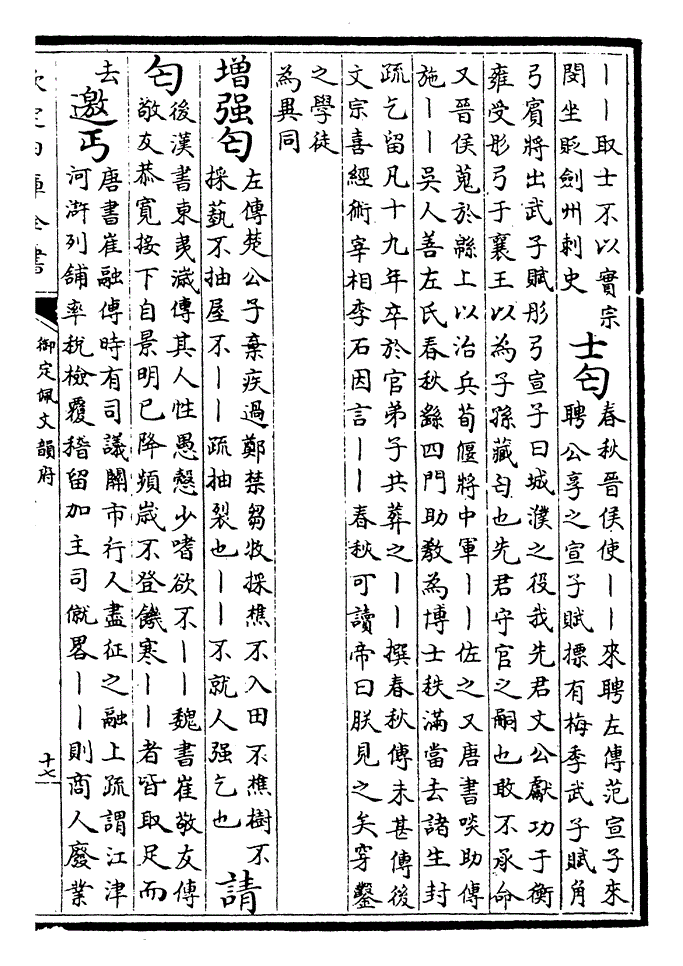 丨丨取士不以實宗
閔坐貶劍州刺史
士匄
春秋晉侯使丨丨來聘左傳范宣子來
聘公享之宣子賦標有梅季武子賦角
弓賓將出武子賦彤弓宣子曰城濮之役我先君文公獻功于衡
雍受彤弓于襄王以為子孫藏匄也先君守官之嗣也敢不承命
又晉侯蒐於緜上以治兵荀偃將中軍丨丨佐之又唐書啖助傳
施丨丨吳人善左氏春秋繇四門助教為博士秩滿當去諸生封
疏乞留凡十九年卒於官弟子共葬之丨丨撰春秋傳未甚傳後
文宗喜經術宰相李石因言丨丨春秋可讀帝曰朕見之矣穿鑿
之學徒
為異同
增强匄
左傳楚公子棄疾過鄭禁芻牧採樵不入田不樵樹不
採蓺不抽屋不丨丨疏抽裂也丨丨不就人强乞也
請
匄
後漢書東夷濊傳其人性愚慤少嗜欲不丨丨魏書崔敬友傳
敬友恭寬接下自景明已降頻歲不登饑寒丨丨者皆取足而
去
邀丐
唐書崔融傳時有司議關市行人盡征之融上疏謂江津
河滸列舖率稅檢覆稽留加主司僦畧丨丨則商人廢業
欽定四庫全書
御定佩文韻府
十七